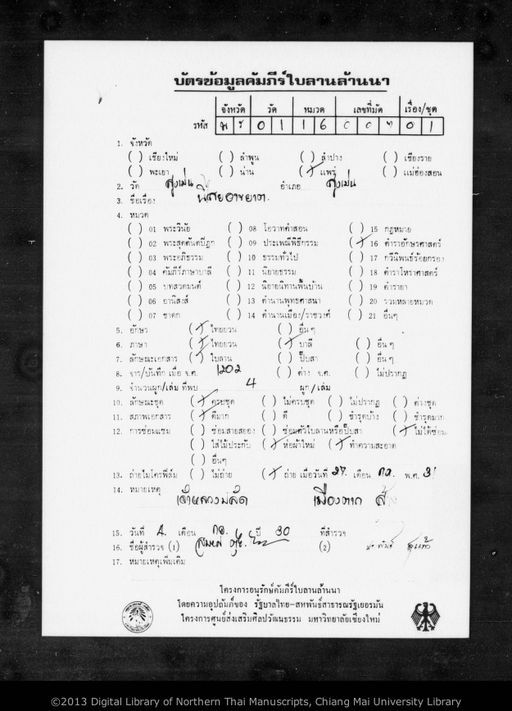 บัตรข้อมูลคัมภีร์ใบลานล้านนา
จังหวัด วัด หมวด เลขที่มัด เรื่อง/ชุด
รหัส พ ร 0 1 1 6 0 0 ๓ 0 1
1. จังหวัด
( ) เชียงใหม่ ( ) ลำพูน ( ) ลำปาง ( ) เชียงราย
( ) พะเยา ( ) น่าน (/) แพร่ ( ) แม่ฮ่องสอน
2. วัด สูงเม่น อำเภอ สูงเม่น
3. ชื่อเรื่อง
4. หมวด
( ) 01 พระวินัย ( ) 08 โอวาทคำสอน ( ) 15 กฎหมาย
( ) 02 พระสุตตันตปิฎก ( ) 09 ประเพณีพิธีกรรม (/) 16 ตำราอักษรศาสตร์
( ) 03 พระอภิธรรม ( ) 10 ธรรมทั่วไป ( ) 17 กวีนิพนธ์ร้อยกรอง
( ) 04 คัมภีร์ภาษาบาลี ( ) 11 นิยายธรรม ( ) 18 ตำราโหราศาสตร์
( ) 05 บทสวดมนต์ ( ) 12 นิยายนิทานพื้นบ้าน ( ) 19 ตำรายา
( ) 06 อานิสงส์ ( ) 13 ตำนานพุทธศาสนา ( ) 20 รวมหลายหมวด
( ) 07 ชาดก ( ) 14 ตำนานเมือง/ราชวงศ์ ( ) 21 อื่นๆ
5. อักษร (/) ไทยยวน ( ) อื่น ๆ
6. ภาษา (/) ไทยยวน (/) บาลี ( ) อื่น ๆ
7. ลักษณะเอกสาร (/) ใบลาน ( ) ปั๊บสา ( ) อื่น ๆ
8. จาร/บันทึก เมื่อ จ.ศ. 1202 ( ) ค่าง จ.ศ. ( ) ไม่ปรากฏ
9. จำนวนผูก/เล่ม ที่พบ 4 ผูก/เล่ม
10. ลักษณะชุด (/) ครบชุด ( ) ไม่ครบชุด ( ) ไม่ปรากฏ ( ) ค่างชุด
11. สภาพเอกสาร (/) ดีมาก ( ) ดี ( ) ชำรุดบ้าง ( ) ชำรุดมาก
12. การซ่อมแซม ( ) ซ่อมสายสยอง ( ) ซ่อมตัวใบลานหรือปั๊บสา (/) ไม่ได้ซ่อม
( ) ใส่ไม้ประกับ (/) ห่อผ้าใหม่ (/) ทำความสะอาด
( ) อื่นๆ
13. ถ่ายไมโครฟิล์ม ( ) ไม่ถ่าย (/) ถ่าย เมื่อวันที่ 27 เดือน กอ. พ.ศ. 31
14. หมายเหตุ
15. วันที่ 4. เดือน กอ. ปี 30 ที่สำรวจ
16. ชื่อผู้สำรวจ (1) (2)
17. หมายเหตุเพิ่มเติม
โครงการอนุรักษ์คัมภีร์ใบลานล้านนา
โดยความอุปถัมภ์ของ รัฐบาลไทย-สหพันธ์สาธารณรัฐเยอรมัน
โครงการศูนย์ส่งเสริมศิลปวัฒนธรรม มหาวิทยาลัยเชียงใหม่
©2013 Digital Library of Northern Thai Manuscripts, Chiang Mai University Library